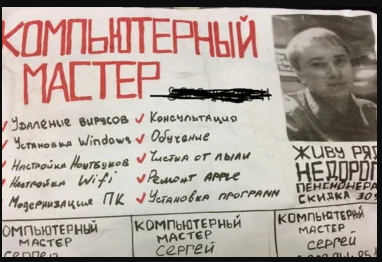 КОМПЬЮТЕРНЫЙ
МАСТЕР
✓ Удаление вирусов ✓ Консультация
✓ Установка Windows ✓ Обучение
✓ Настройка Ноутбуков ✓ Чистка от пыли
✓ Настройка Wifi ✓ Ремонт Apple
Модернизация ПК ✓ Установка программ
ЖИВУ
НЕДОРОГ
ПЕНСИОНЕРА
СКИДКА 30
КОМПЬЮТЕРНЫЙ
МАСТЕР
СЕРГЕЙ
КОМПЬЮТЕРНЫЙ
МАСТЕР
СЕРГЕЙ
КОМПЬЮТЕРНЫЙ
МАСТЕР
СЕРГЕЙ